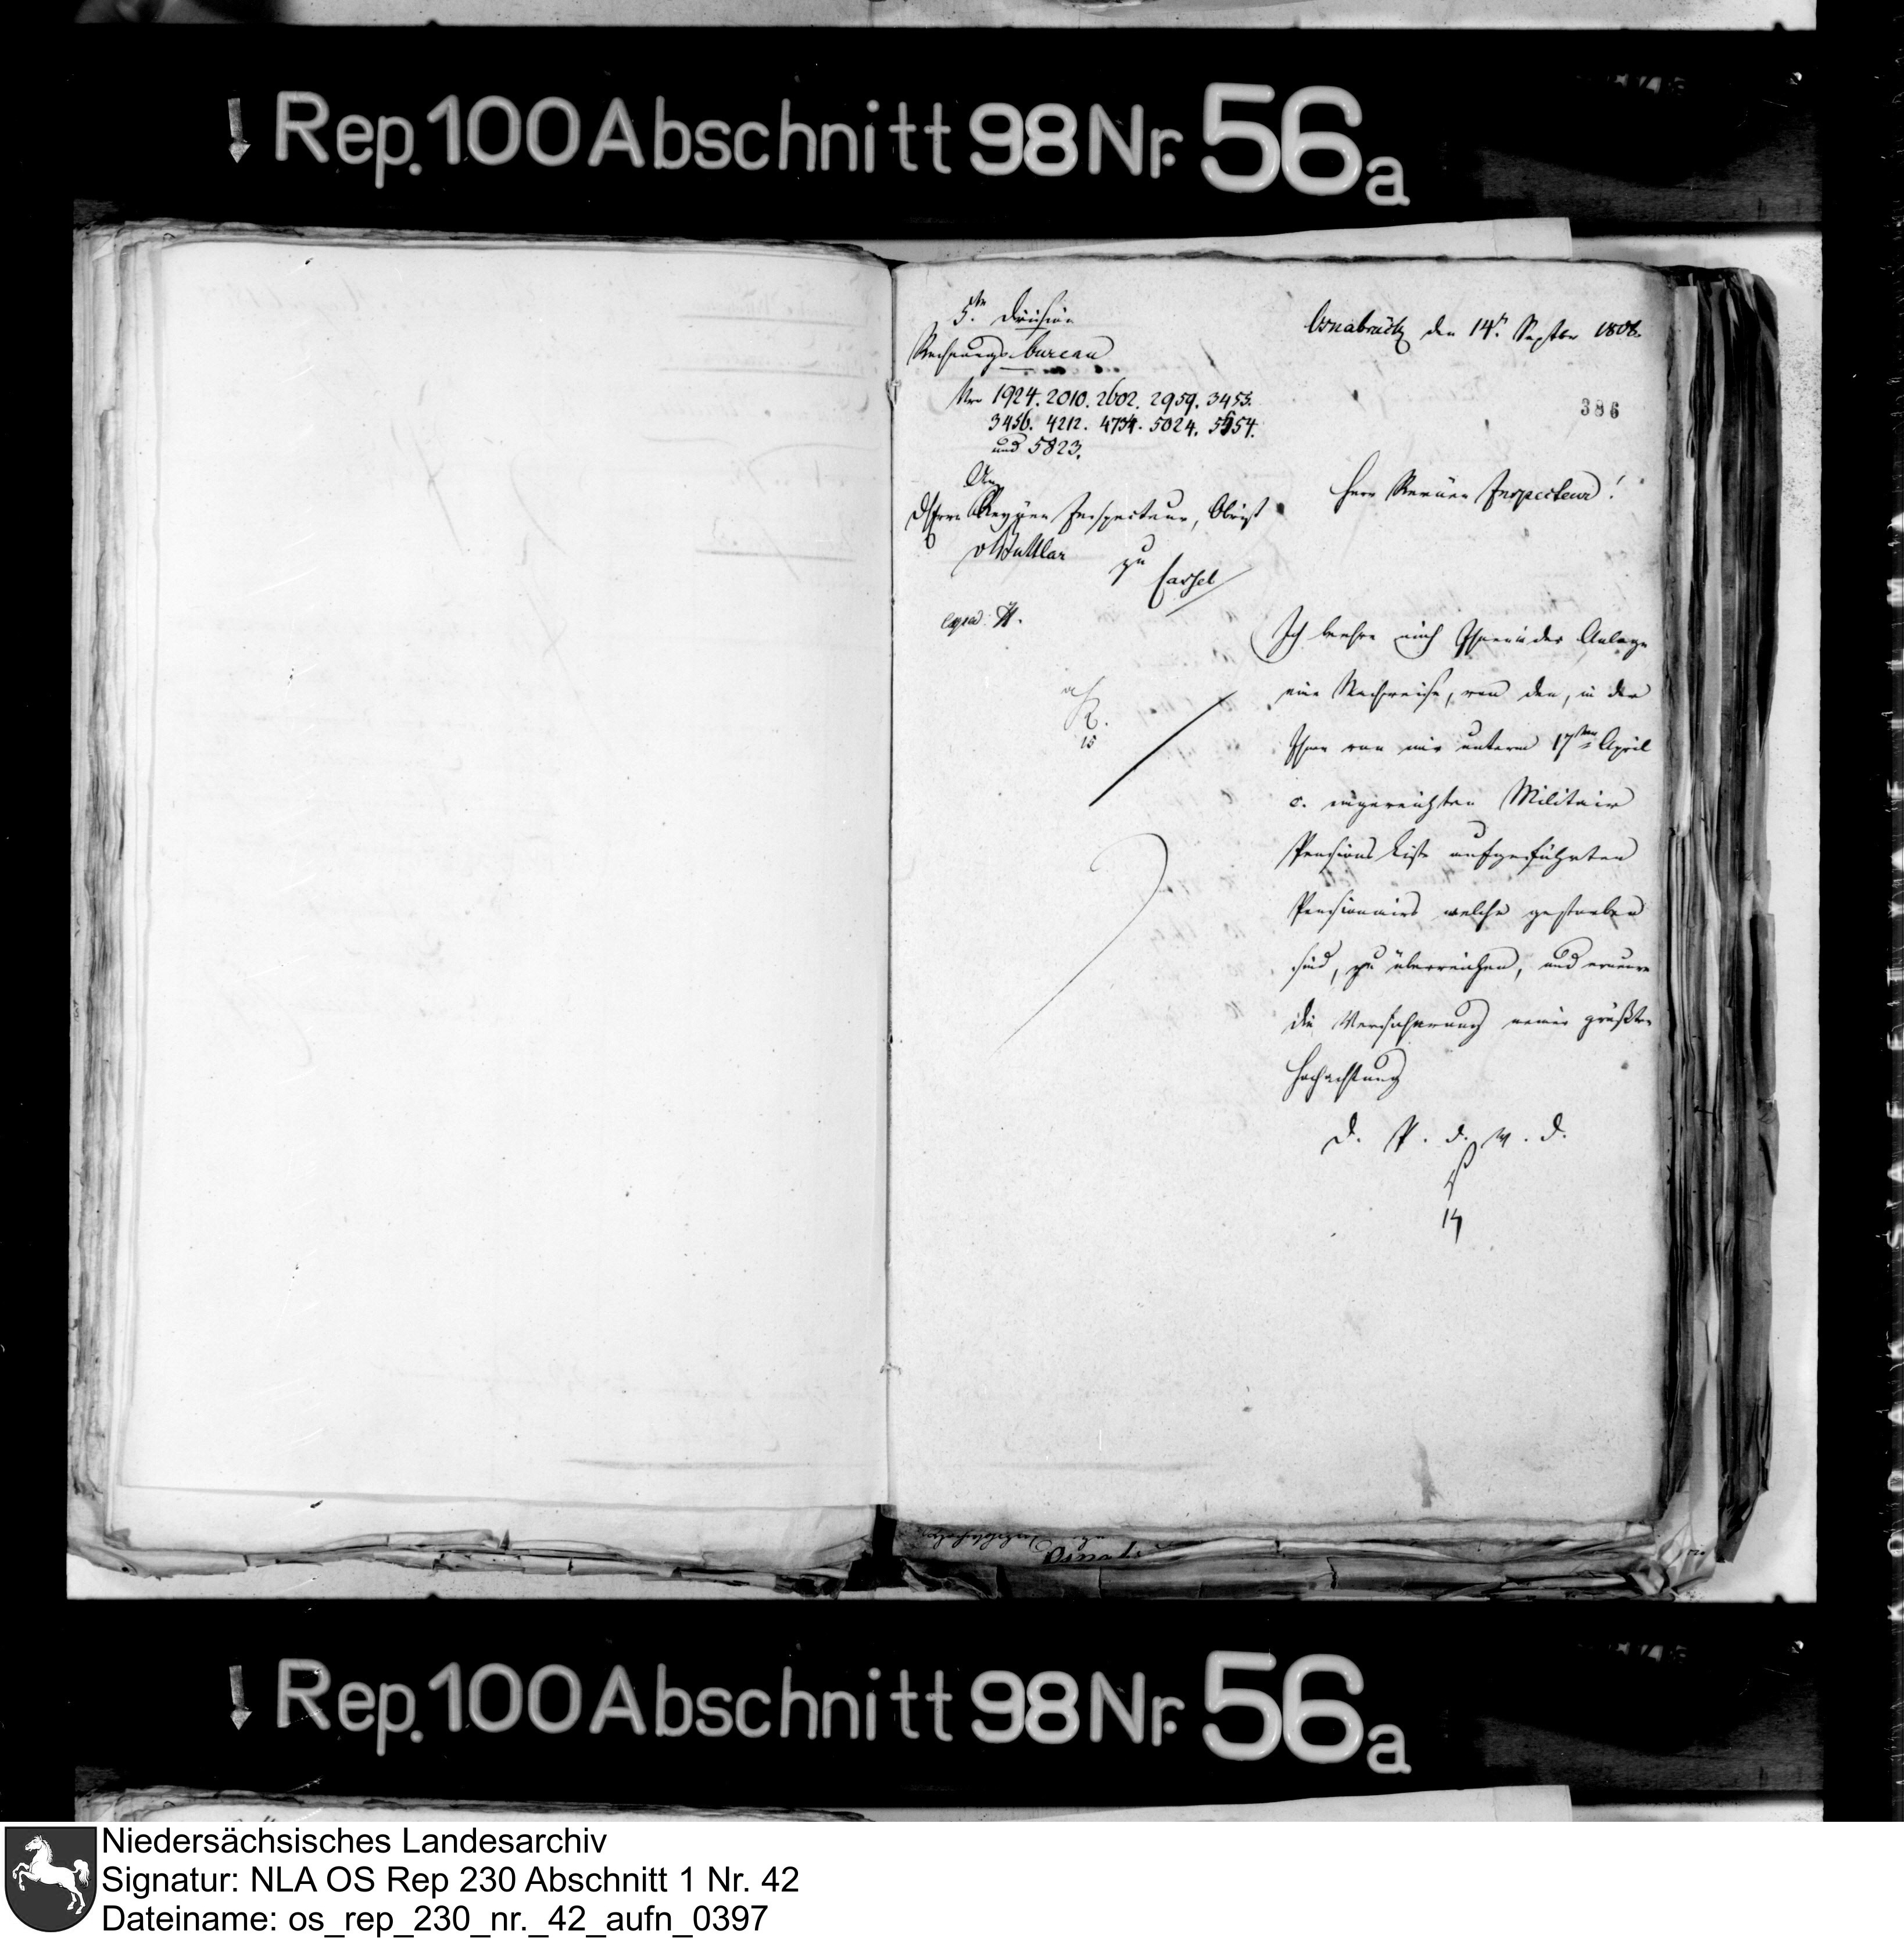 Rep. 100 Abschnitt 98 Nr. 56a
5te Division
Rechnungs-bureau
Nro 1924. 2010. 2602. 2959. 3453.
3456. 4212. 4734. 5024. 5554.
und 5823.
An
d Herrn Revüen Inspecteur, Obrist
v Buttlar
zu
Cassel
Osnabrück den 14t. Septbr 1808.
386
Herr Revüen Inspecteur!
exped.
15
Ich beehre mich Ihnen in der Anlage
eine Nachweise, von den, in der
Ihnen von mir unterm 17ten April
c. eingereichten Militair
Pensions Liste aufgeführten
Pensionairs welche gestorben
sind, zu überreichen, und erneure
die Versicherung meiner größten
Hochachtung
D. P. d. W. D.
14
Rep. 100 Abschnitt 98 Nr. 56a
Niedersächsisches Landesarchiv
Signatur: NLA OS Rep 230 Abschnitt 1 Nr. 42
Dateiname: os_rep_230_nr._42_aufn_0397